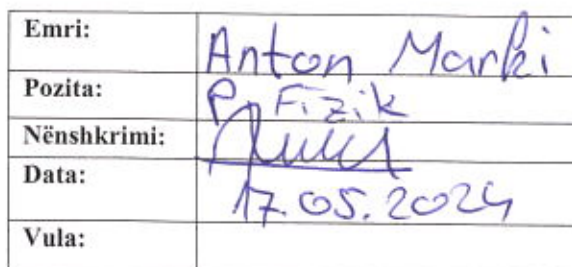 Emri: Anton Marki
Pozita: P. Fizik
Nënshkrimi:
Data: 17.05.2024
Vula: